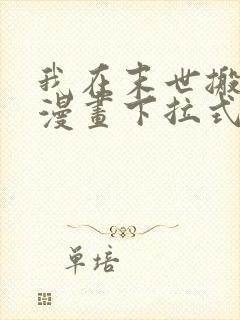 我在末世搬
漫畫下拉式
单培